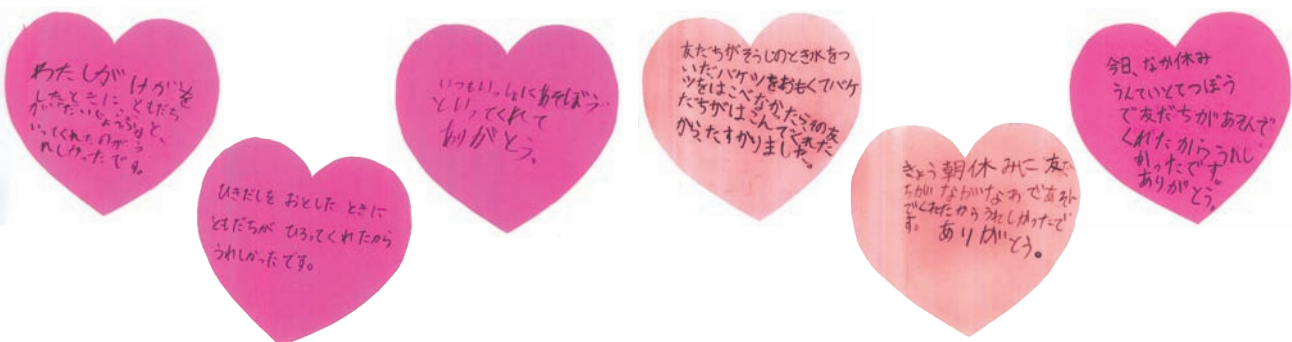 わたしがけがを
したときに、ともだち
が「だいじょうぶ。」と、
いってくれたのがう
れしかったです。
ひきだしを おとした ときに
ともだちが ひろってくれたから
うれしかったです。
いつもいっしょにあそぼう
といってくれて
ありがとう。
友だちがそうじのとき水をつ
いだバケツをおもくてバケ
ツをはこべなかたらその友
だちがはこんでくれた
からたすかりました。
きょう朝休みに友だ
ちがながなわであそん
でくれたからうれしかったで
す。 ありがとう。
今日、なか休み
うんていとてつぼう
で友だちがあそんで
くれたからうれし
かったです。
ありがとう。